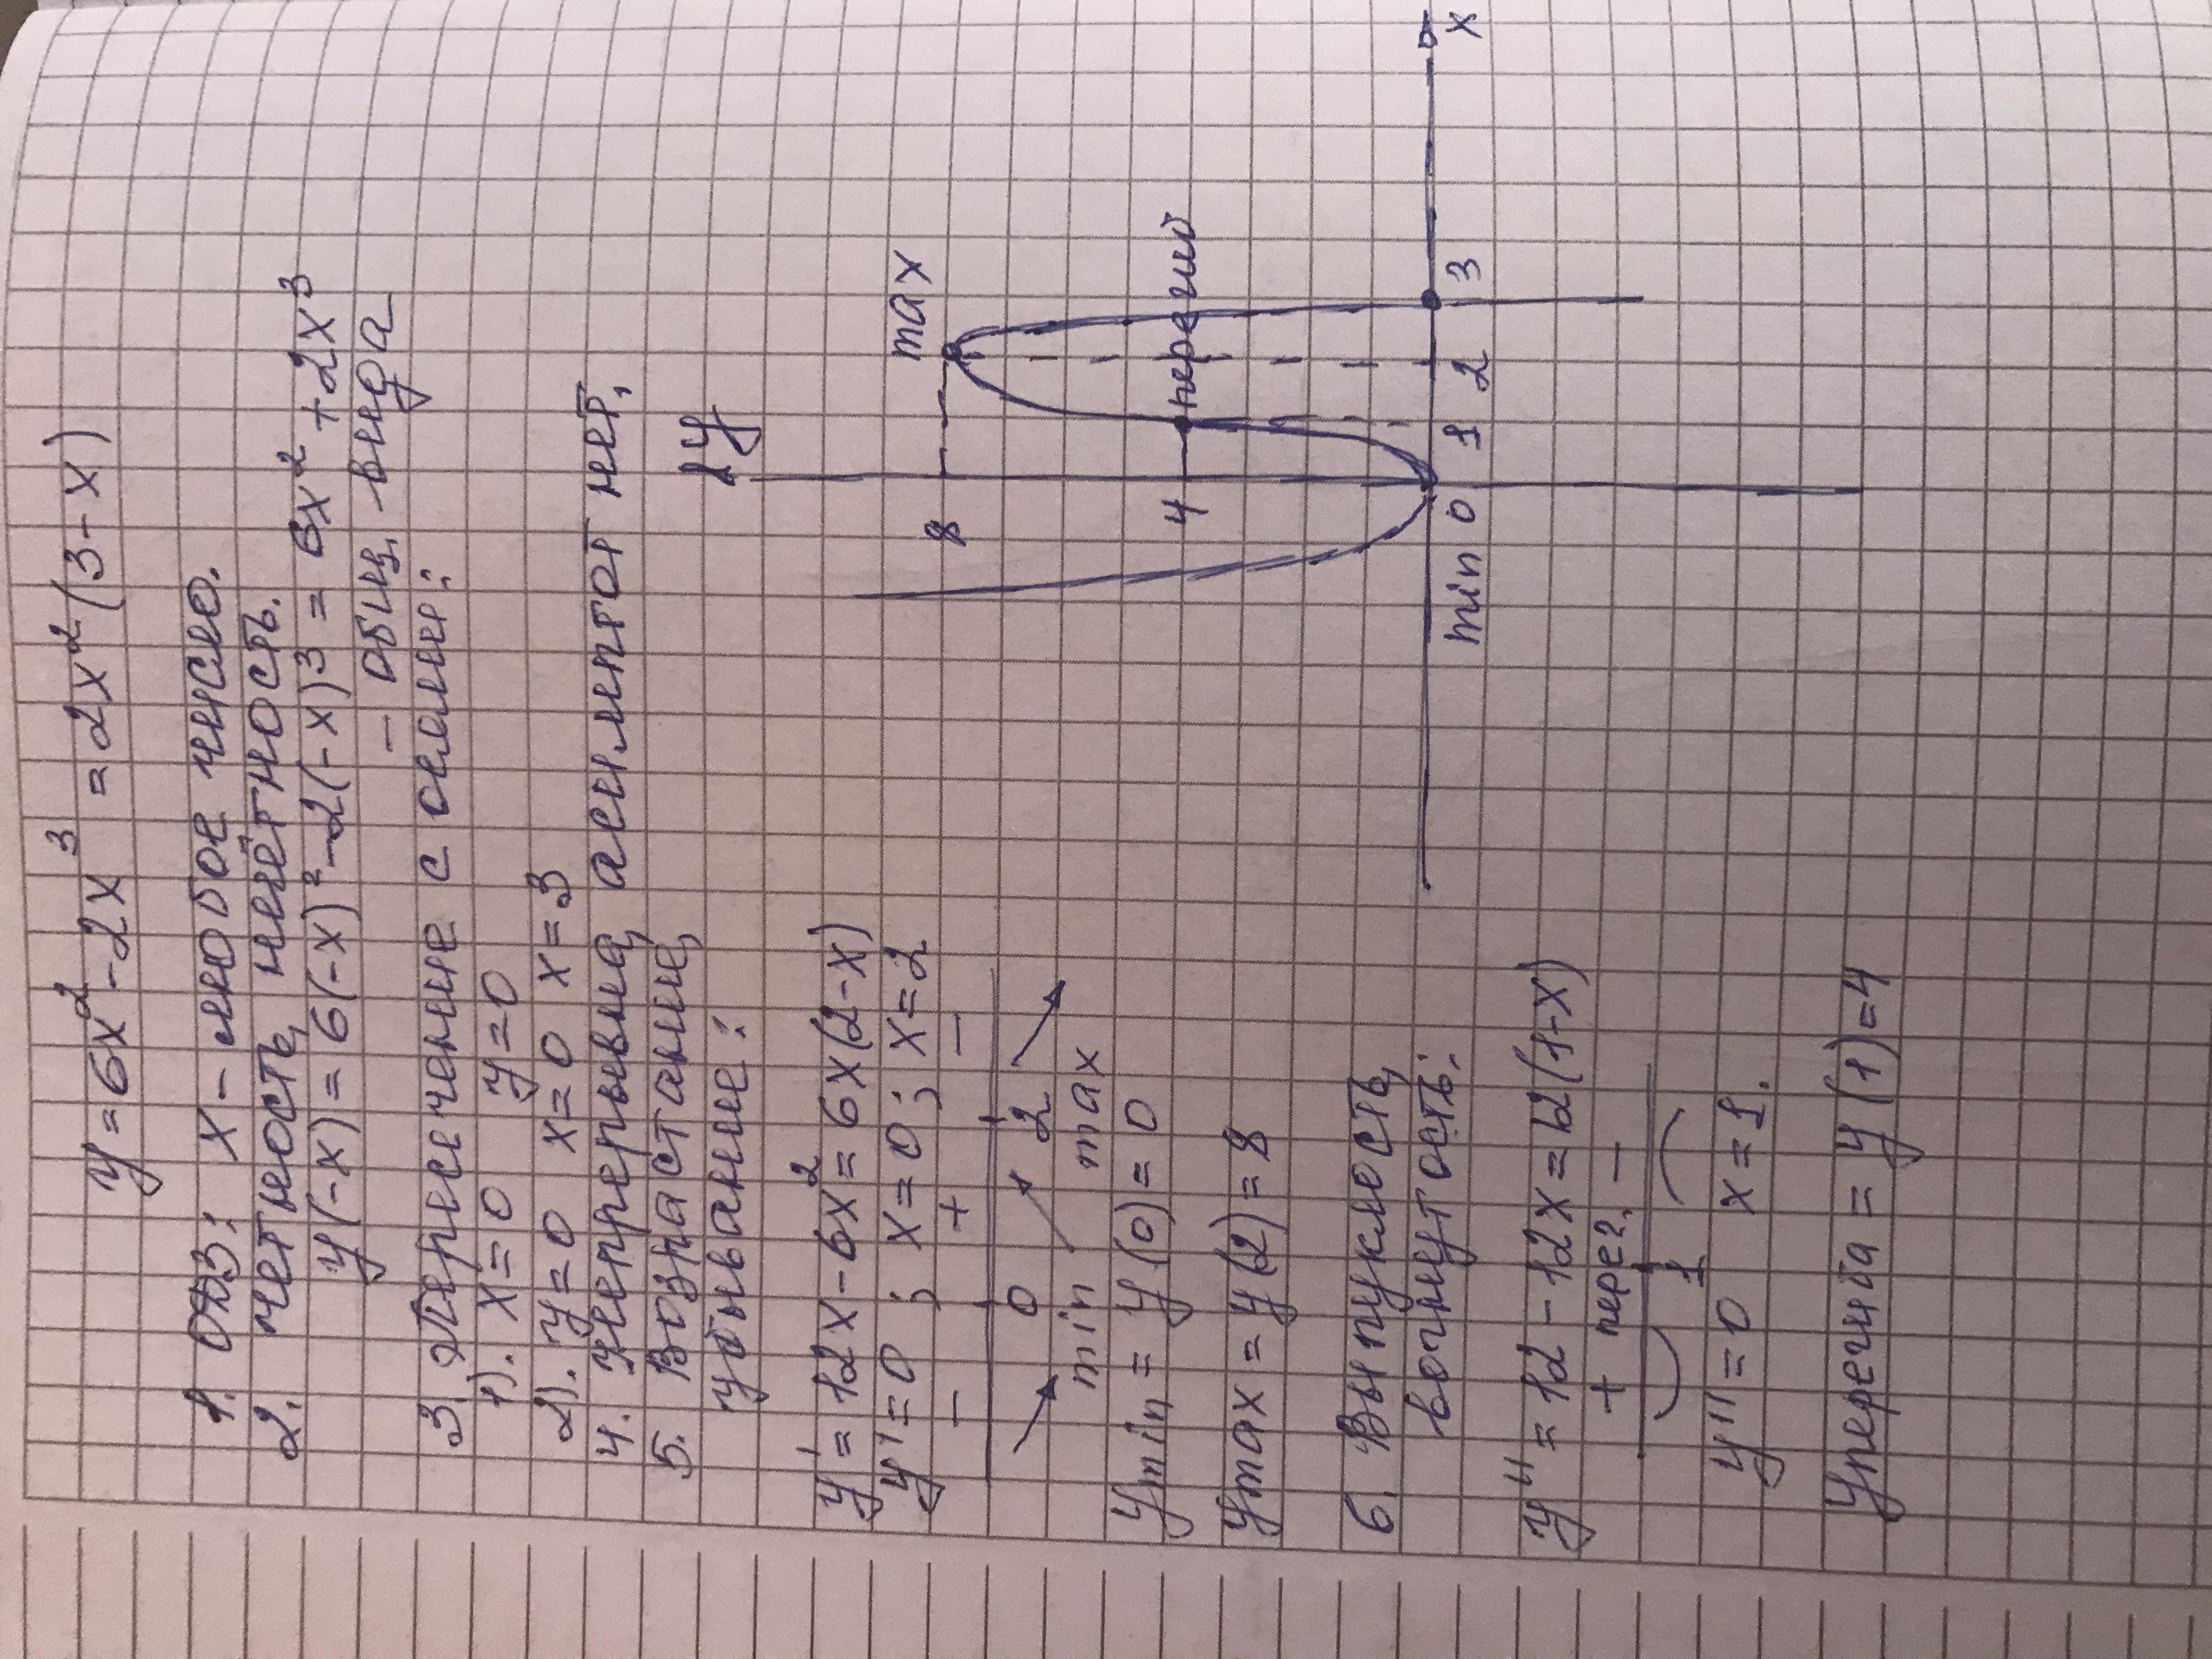 y = 6x² - 2x³ = 2x²(3-x)
1. ОДЗ: x - любое число.
2. четность, нечётность.
y(-x) = 6(-x)² - 2(-x)³ = 6x² + 2x³
- общ. вида
3. Пересечение с осями:
1). x = 0 y = 0
2). y = 0 x = 0 x = 3
4. Непрерывна, асимптот нет.
5. Возрастание,
убывание:
y' = 12x - 6x² = 6x(2-x)
y' = 0 ; x = 0 ; x = 2
- + -
0 2
min max
y min = y(0) = 0
y max = y(2) = 8
6. Выпуклость,
вогнутость:
y'' = 12 - 12x = 12(1-x)
+ перег. -
1
y'' = 0 x = 1.
y перегиба = y(1) = 4
y
8
max
4
перегиб
min 0 1 2 3 x